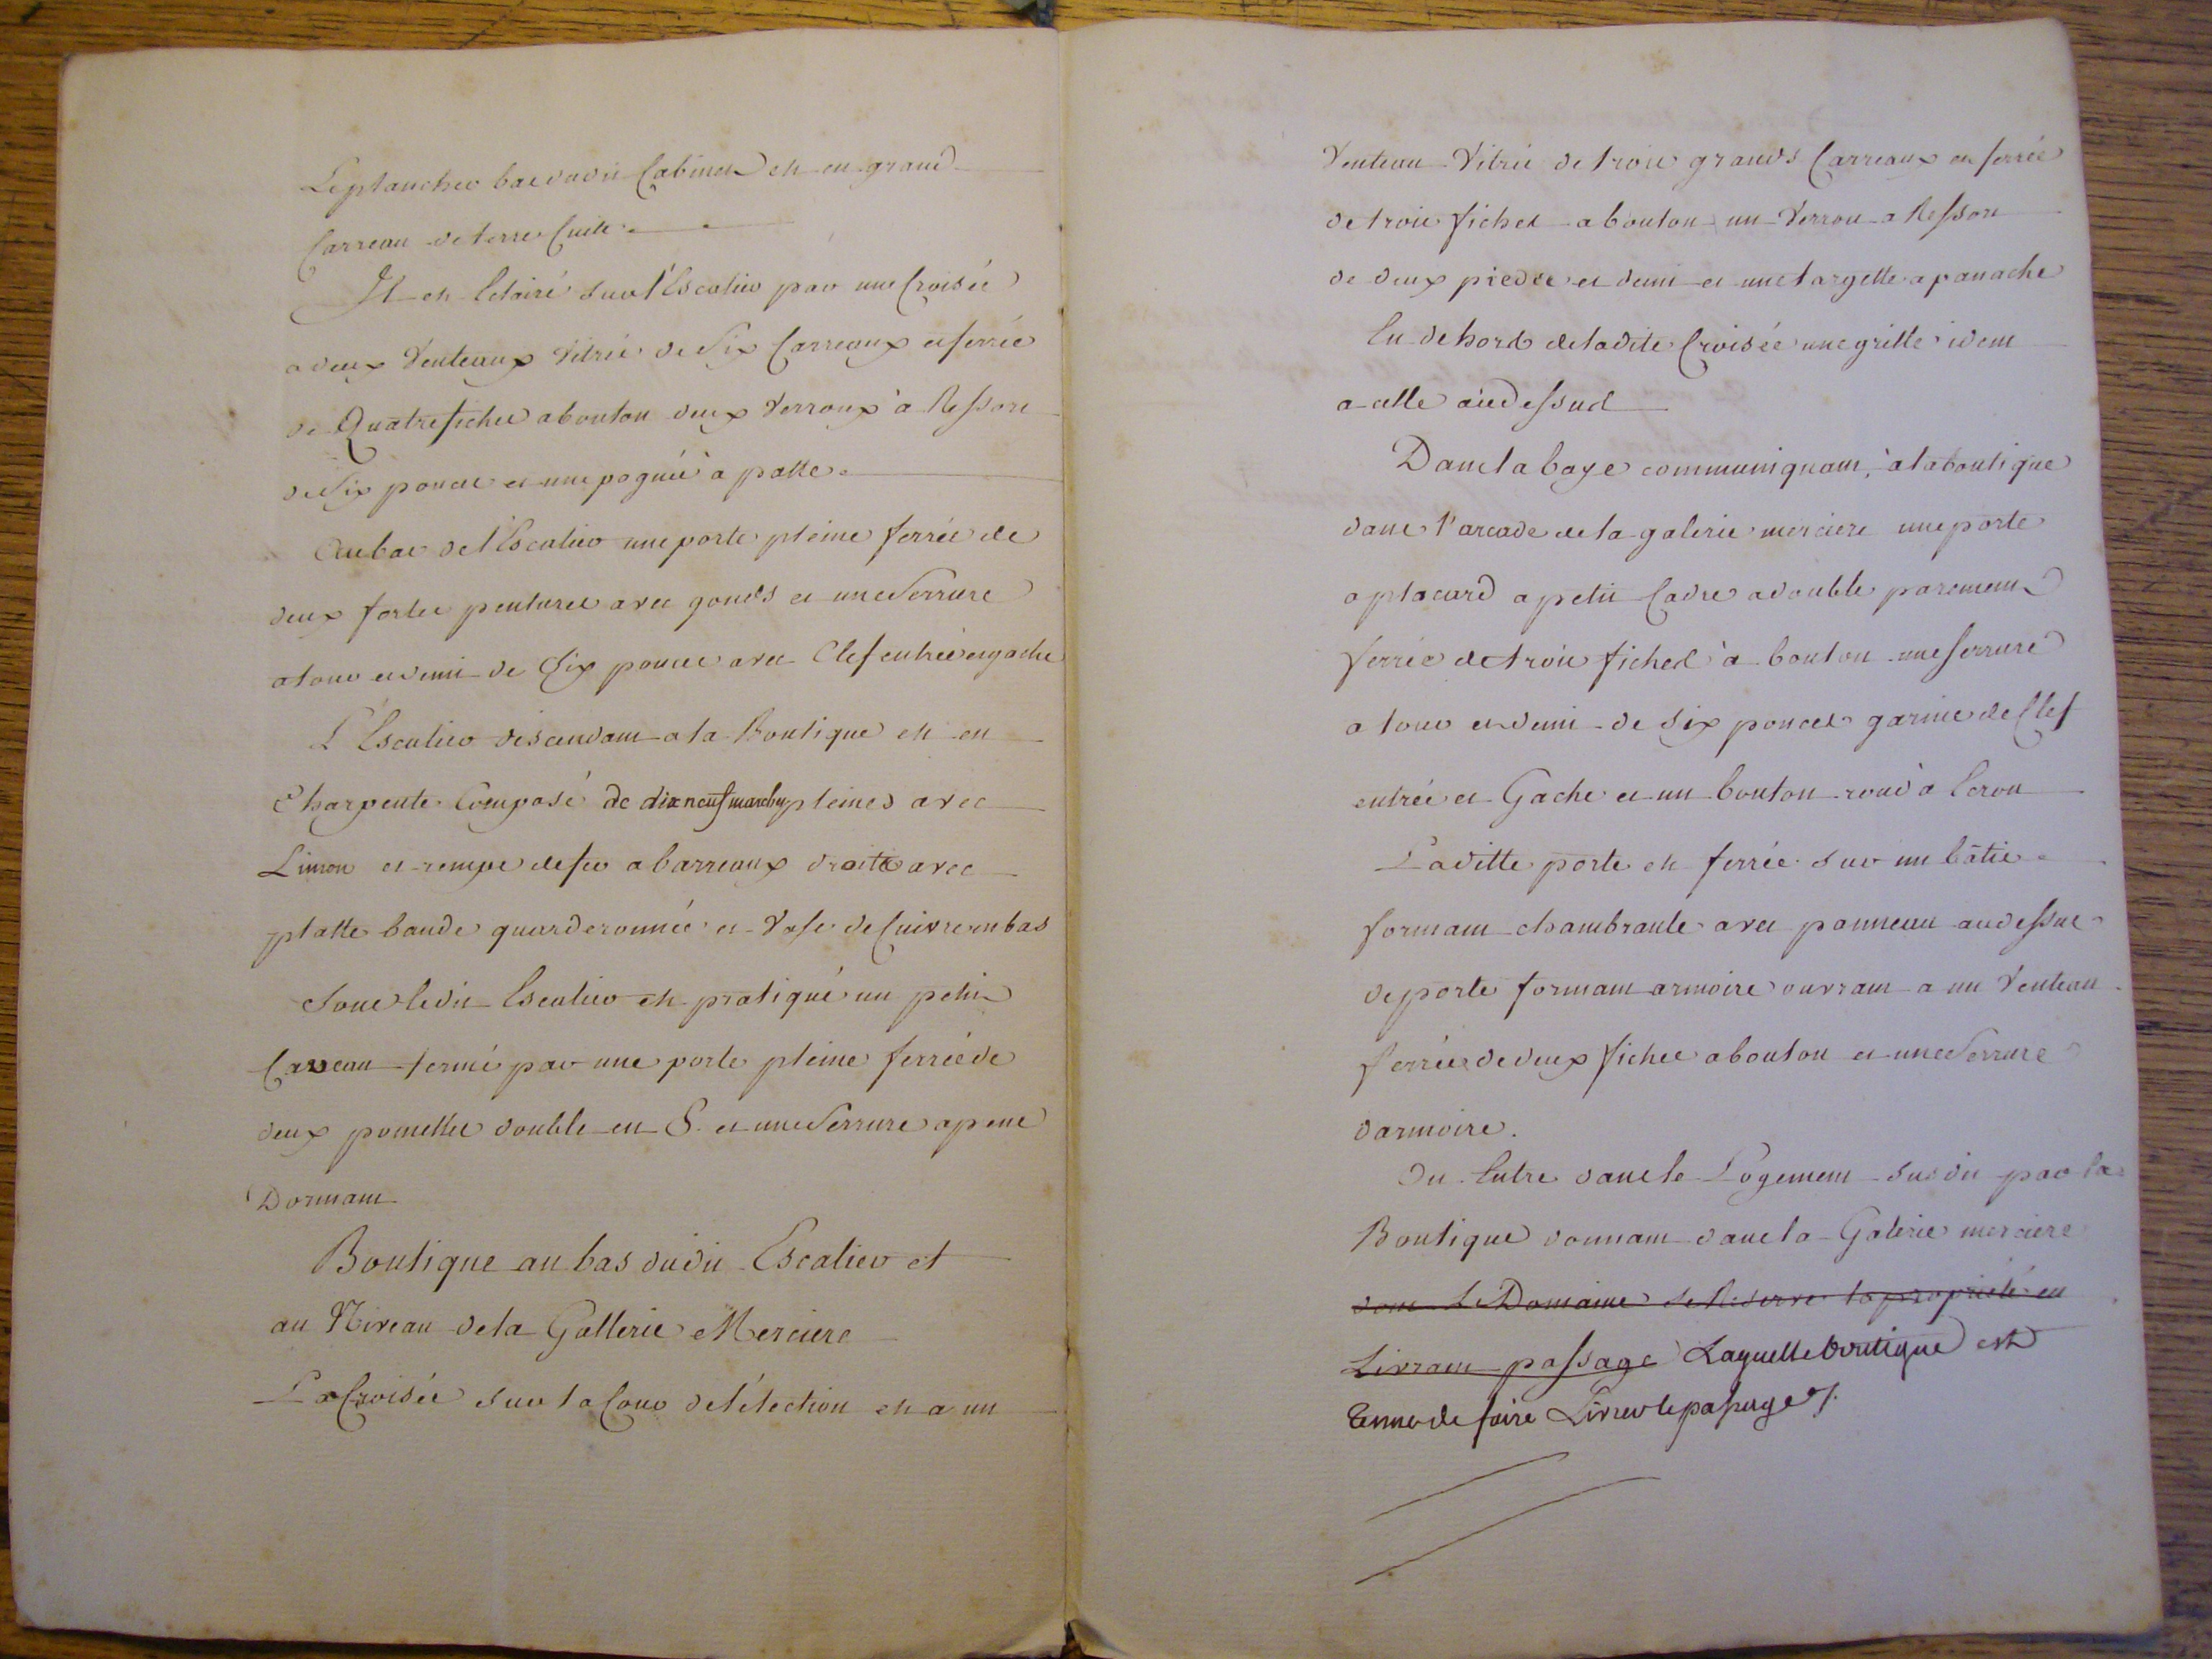 Le plancher bas dudit Cabinet est en grand
Carreau de terre Cuite.
Il est Eclairé sur l'Escalier par une Croisée
a deux Venteaux Vitrée de Six Carreaux et ferrée
de Quatre fiches a bouton deux Verroux à Ressort
de Six pouces et une pognée à patte.
Au bas de l'Escalier une porte pleine ferrée de
deux fortes pentures avec gonds et une Serrure
a tour et demi de Six pouces avec Clef entrée et gache
L'Escalier descendant a la Boutique est en
Charpente Composé de dix neuf marches pleines avec
Limon et rempe de fer a barreaux droits avec
platte bande quarderonnée et Vase de Cuivre en bas
Sous ledit Escalier est pratiqué un petit
Caveau fermé par une porte pleine ferrée de
deux pomelles double en S. et une Serrure a pene
Dormant
Boutique au bas dudit Escalier et
au Niveau de la Gallerie Merciere
La Croisée sur la Cour de l'élection est a un
Venteau Vitrée de trois grands Carreaux et ferrée
de trois fiches a bouton un Verrou a Ressort
de deux piedes et demi et une targette a panache
En dehors de ladite Croisée une grille idem
a celle audessus
Dans la baye communiquant à la boutique
dans l'arcade de la galerie merciere une porte
a placard a petit Cadre a double parement
ferrée de trois fiches à bouton une serrure
a tour et demi de six pouces garnie de Clef
entrée et Gache et un bouton rond à Ecrou
Laditte porte est ferrée sur un bâtie
formant chambranle avec panneau audessus
de porte formant armoire ouvrant a un Venteau
ferrée de deux fiches a bouton et une Serrure
darmoire.
On Entre dans le Logement susdit par la
Boutique donnant dans la Galerie merciere
dont Le Domaine se Reserve la propriété en
Livrant passage Laquelle boutique est
tenue de faire Livrer le passage